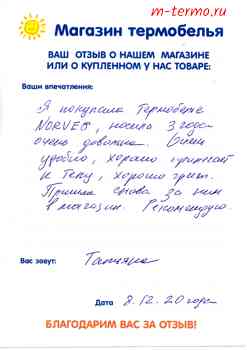 m-termo.ru
Магазин термобелья
ВАШ ОТЗЫВ О НАШЕМ МАГАЗИНЕ
ИЛИ О КУПЛЕННОМ У НАС ТОВАРЕ:
Ваши впечатления:
Я покупала термобелье
NORVEG, носила 3 года
очень довольна. Очень
удобно, хорошо прилегает
к телу, хорошо греет.
Пришла снова за ним
в магазин. Рекомендую.
Вас зовут: Татьяна
Дата 8.12.20 года
БЛАГОДАРИМ ВАС ЗА ОТЗЫВ!